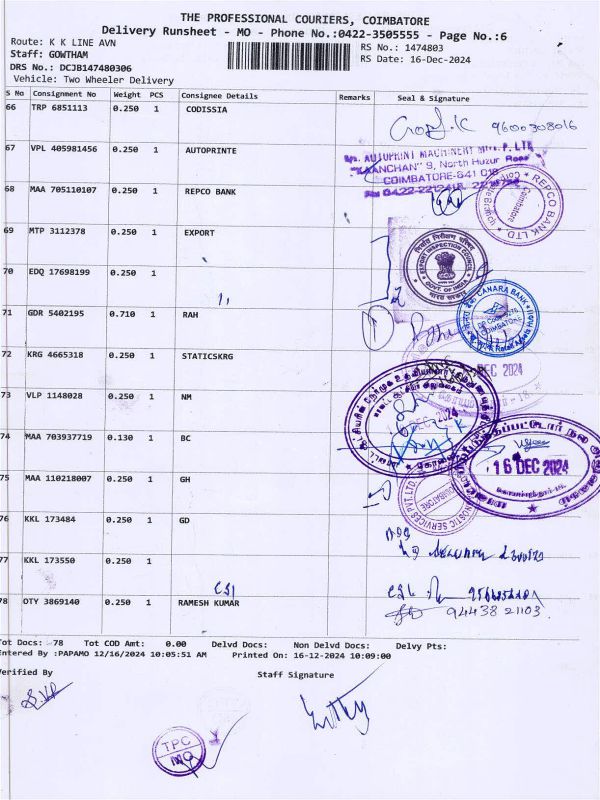 THE PROFESSIONAL COURIERS, COIMBATORE
Delivery Runsheet - MO - Phone No.:0422-3505555 - Page No.:6
Route: K K LINE AVN
RS No.: 1474803
Staff: GOWTHAM
RS Date: 16-Dec-2024
DRS No.: DCJB147480306
Vehicle: Two Wheeler Delivery
S No Consignment No Weight PCS Consignee Details Remarks Seal & Signature
66 TRP 6851113 0.250 1 CODISSIA
9600308016
67 VPL 405981456 0.250 1 AUTOPRINTE
AUTOPRINT MACHINERY
"KAANCHAN" 9, North Huzur Road
COIMBATORE-641 018
68 MAA 705110107 0.250 1 REPCO BANK
REPCO BANK LTD.
Coimbatore
69 MTP 3112378 0.250 1 EXPORT
EXPORT INSPECTION COUNCIL
GOVT. OF INDIA
70 EDQ 17698199 0.250 1
CANARA BANK
COIMBATORE
71 GDR 5402195 0.710 1 RAH
72 KRG 4665318 0.250 1 STATICSKRG
DEC 2024
73 VLP 1148028 0.250 1 NM
DEC 2024
74 MAA 703937719 0.130 1 BC
16 DEC 2024
75 MAA 110218007 0.250 1 GH
DIAGNOSTIC SERVICES PVT. LTD.
COIMBATORE
76 KKL 173484 0.250 1 GD
77 KKL 173550 0.250 1
CSI
78 OTY 3869140 0.250 1 RAMESH KUMAR
94438 21103
Tot Docs: 78 Tot COD Amt: 0.00 Delvd Docs: Non Delvd Docs: Delvy Pts:
Entered By :PAPAMO 12/16/2024 10:05:51 AM Printed On: 16-12-2024 10:09:00
Verified By Staff Signature
TPC
MO